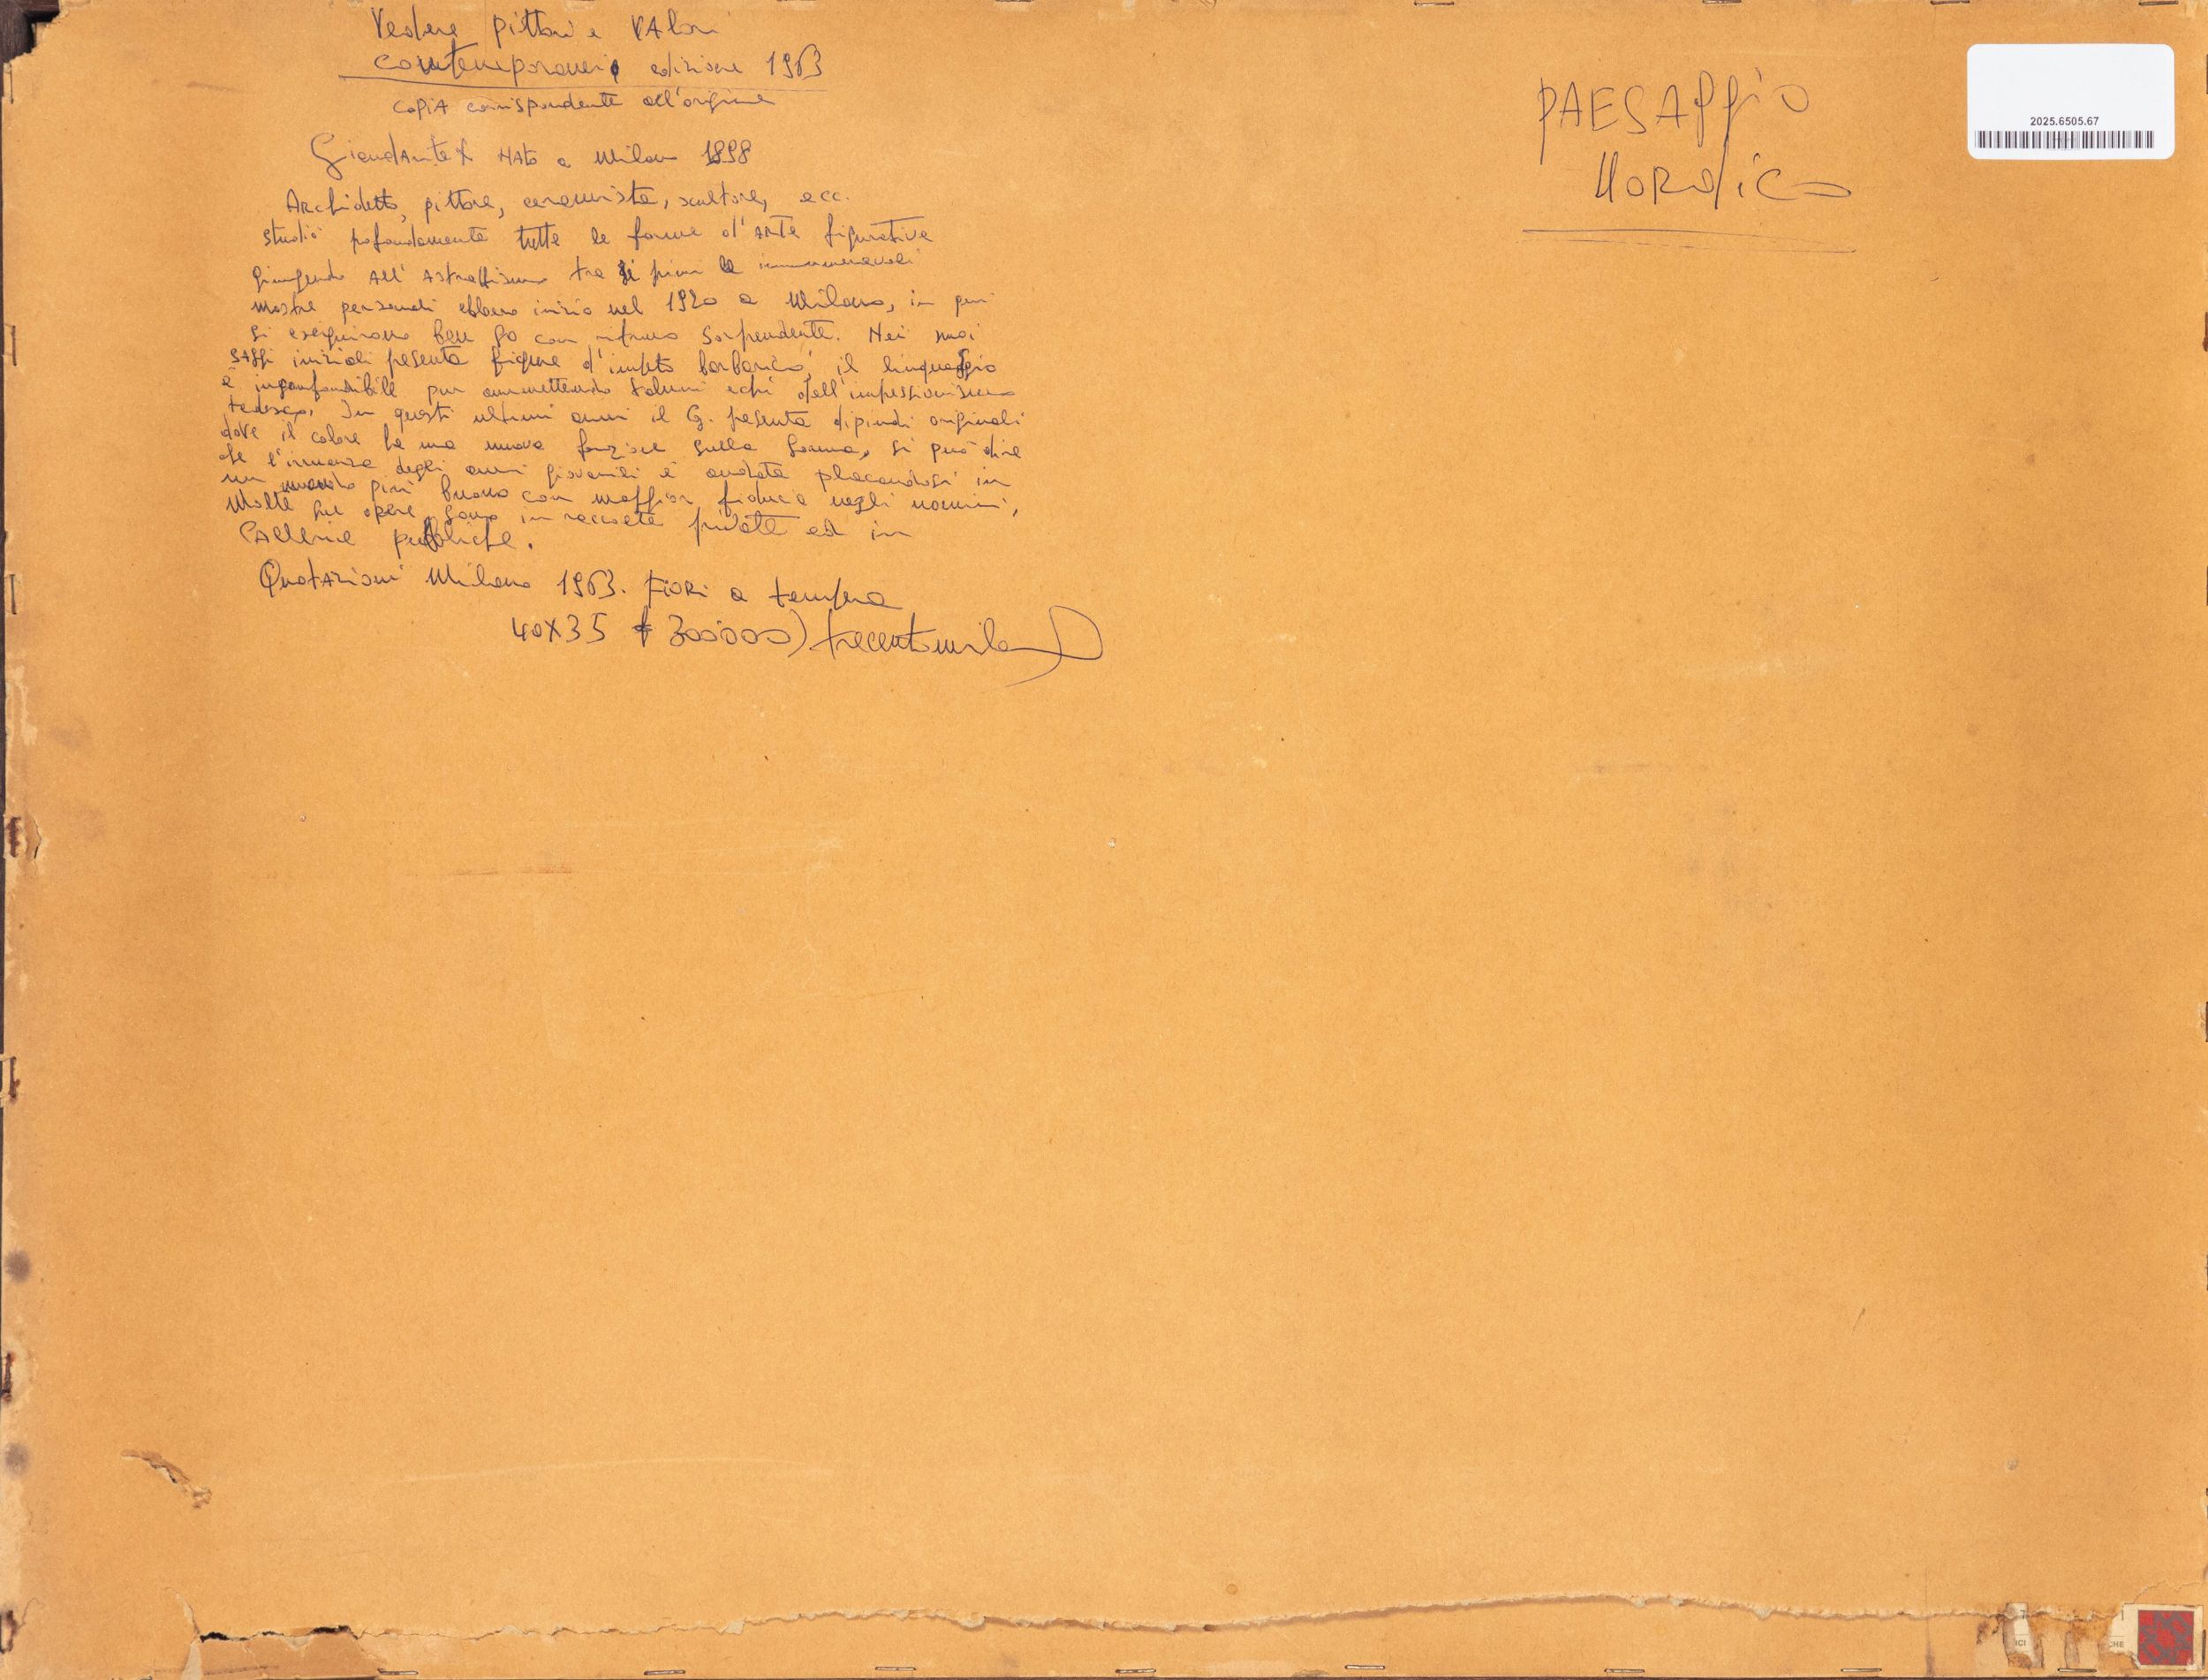 Vedere pittori e VAlori
contemporanei edizione 1963
copiA corrispondente all'origine
Giandante X NAto a Milano 1898
Archidetto, pittore, ceramista, scultore, ecc.
studiò pofondamente tutte le forme d'ArTe figurative
giungendo All'Astrattismo tra i primi le innumerevoli
mostre personali ebbero inizio nel 1920 a Milano, in poi
si eseguirono ben 90 con ritmo sorprendente. Nei suoi
sAggi iniziali pesenta figure d'impeto barbarico, il linguaggio
è inconfondibile pur ammettendo taluni echi dell'impessionismo
tedesco. In questi ultimi anni il G. pesenta dipindi originali
dove il colore ha una nuova funzione sulla forma, si può dire
che l'irruenza degli anni giovanili è andata placandosi in
un mondo più buono con maggior fiducia negli uomini,
Molte sue opere sono in raccolte private ed in
GAllerie pubbliche.
QuotAzioni Milano 1963. FioRi a tempera
40X35 £ 300000) trecentomila
PAESAggio
NoRdico
2025.6505.67
ICI
CHE